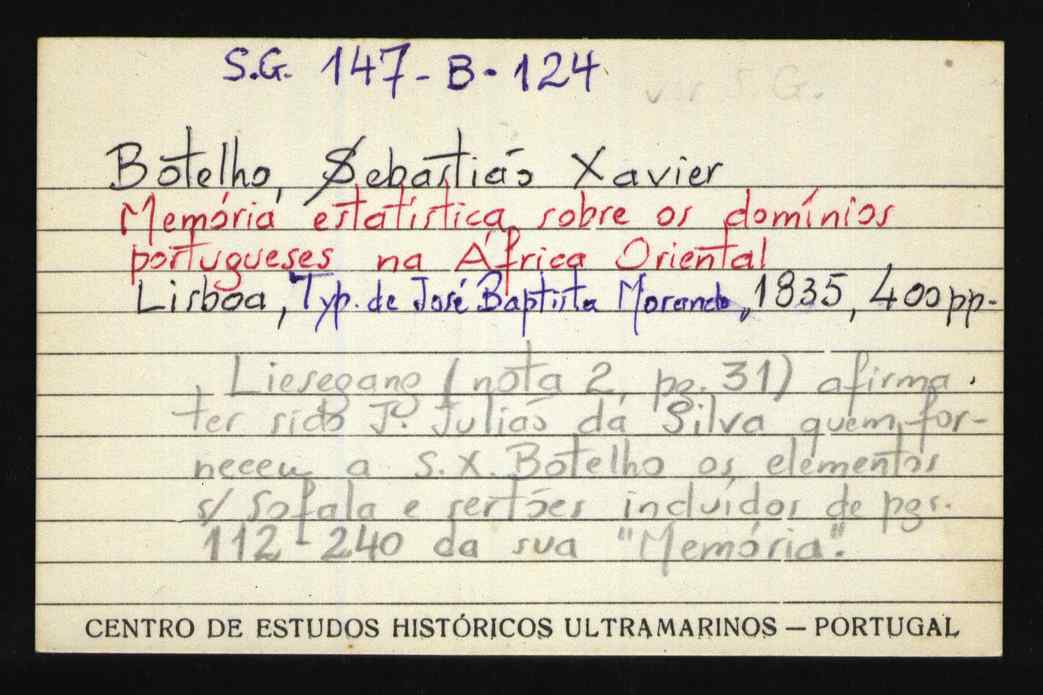 S.G. 147-B-124
ver S.G.
Botelho, Sebastião Xavier
Memória estatística sobre os domínios
portugueses na África Oriental
Lisboa, Typ. de José Baptista Morando, 1835, 400 pp.
Liesegang (nota 2, pg. 31) afirma
ter sido Jº. Julião da Silva quem for-
neceu a S. X. Botelho os elementos
s/ Sofala e sertões incluídos de pgs.
112-240 da sua "Memória".
CENTRO DE ESTUDOS HISTÓRICOS ULTRAMARINOS — PORTUGAL